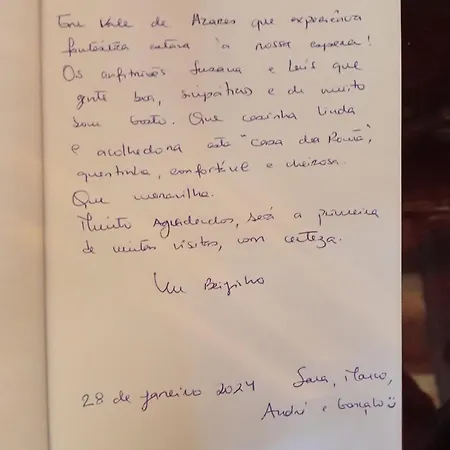 Em Vale de Azares que experiência
fantástica estava à nossa espera!
Os anfitriões Susana e Luís que
gente boa, simpáticos e de muito
bom gosto. Que casinha linda
e acolhedora esta "Casa da Romã",
quentinha, confortável e cheirosa.
Que maravilha.
Muito Agradecidos, será a primeira
de muitas visitas, com certeza.
Um Beijinho
28 de janeiro 2024
Sara, Marco,
André e Gonçalo